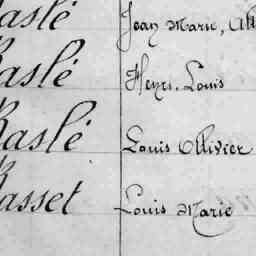 Raslé Jean Marie, All
Raslé Henri, Louis
Raslé Louis Ollivier
Rasset Louis Marie